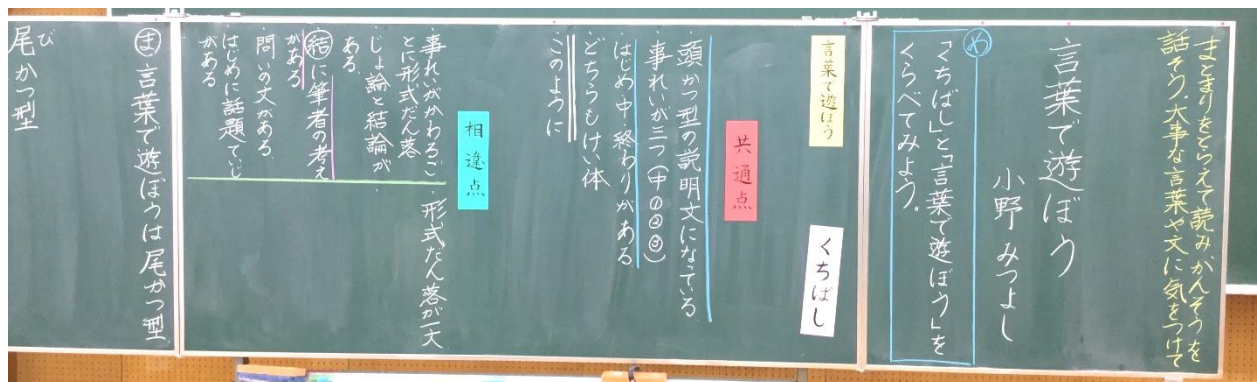 まとまりをとらえて読み、かんそうを
話そう。大事な言葉や文に気をつけて
言葉で遊ぼう
小野 みつよし
め
「くちばし」と「言葉で遊ぼう」を
くらべてみよう。
言葉で遊ぼう
くちばし
共通点
・頭かつ型の説明文になっている
・事れいが三つ(中①②③)
・はじめ中終わりがある
・どちらもけい体
・このように
相違点
形式だん落が一文
・事れいがかわるご
とに形式だん落
・じょ論と結論が
ある
結に筆者の考え
がある
・問いの文がある
・はじめに話題ていじ
がある
ま 言葉で遊ぼうは尾かつ型
び
尾かつ型